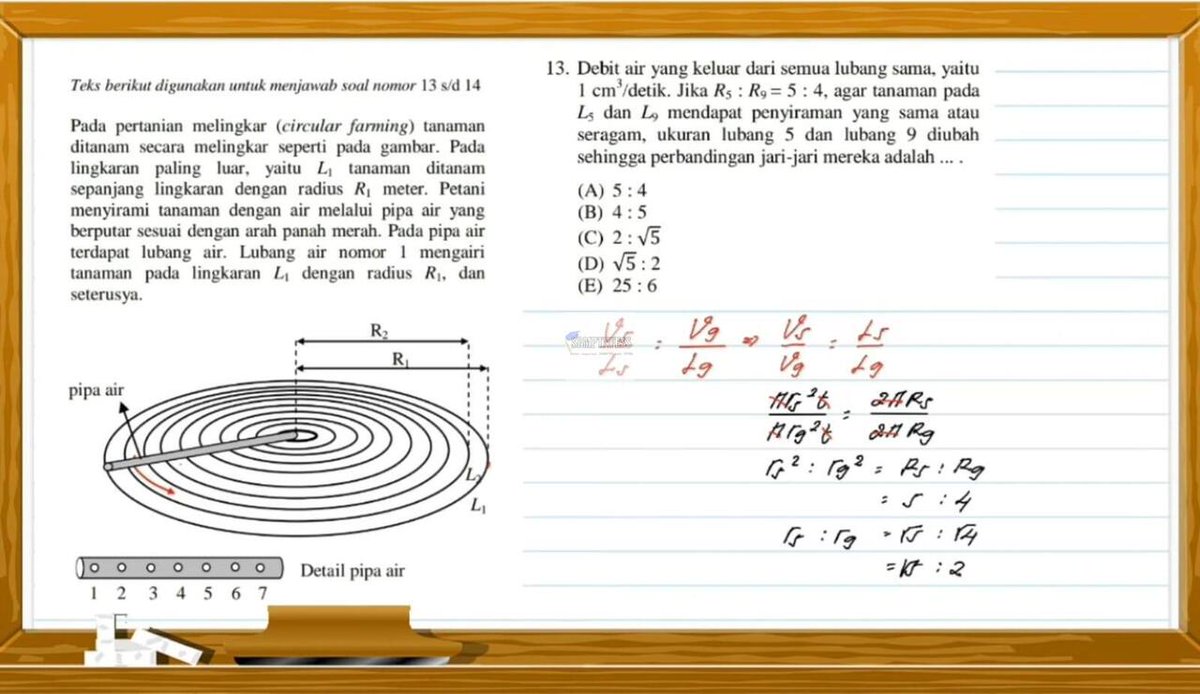 Teks berikut digunakan untuk menjawab soal nomor 13 s/d 14
Pada pertanian melingkar (circular farming) tanaman
ditanam secara melingkar seperti pada gambar. Pada
lingkaran paling luar, yaitu L₁ tanaman ditanam
sepanjang lingkaran dengan radius R₁ meter. Petani
menyirami tanaman dengan air melalui pipa air yang
berputar sesuai dengan arah panah merah. Pada pipa air
terdapat lubang air. Lubang air nomor 1 mengairi
tanaman pada lingkaran L₁ dengan radius R₁, dan
seterusya.
R₂
R₁
pipa air
L₂
L₁
Detail pipa air
1 2 3 4 5 6 7
13. Debit air yang keluar dari semua lubang sama, yaitu
1 cm³/detik. Jika R₅ : R₉ = 5 : 4, agar tanaman pada
L₅ dan L₉ mendapat penyiraman yang sama atau
seragam, ukuran lubang 5 dan lubang 9 diubah
sehingga perbandingan jari-jari mereka adalah ... .
(A) 5 : 4
(B) 4 : 5
(C) 2 : √5
(D) √5 : 2
(E) 25 : 6
V₅/L₅ = V₉/L₉ ⇒ V₅/V₉ = L₅/L₉
πr₅²t/πr₉²t = 2πR₅/2πR₉
r₅² : r₉² = R₅ : R₉
= 5 : 4
r₅ : r₉ = √5 : √4
= √5 : 2